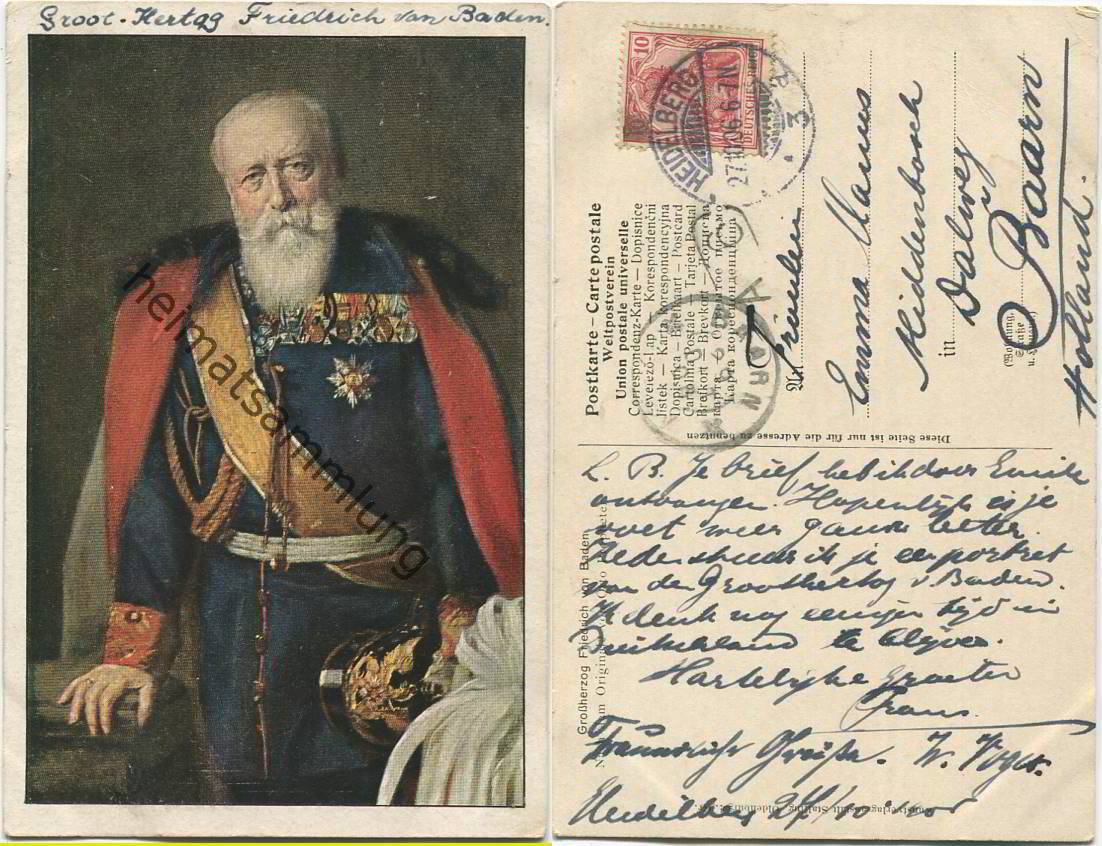 Groot-Hertog Friedrich van Baden.
heimatsammlung
10
DEUTSCHES REICH
HEIDELBERG
27.10.06.6-7N
3
Postkarte – Carte postale
Weltpostverein
Union postale universelle
Correspondenz-Karte – Dopisnice
Levelező-Lap – Korespondenční
lístek – Karta korespondencyjna
Dopisnica – Briefkaart – Postcard
Cartolina Postale Tarjeta Postal
Brefkort – Brevkort – Дописна
карта – Открытое письмо
Карта кореспонденциина
BAARN
An Fräulein
Emma Manus
Middenbosch
in Dalweg
Baarn
(Wohnung,
Straße
u.
Holland.
Diese Seite ist nur für die Adresse zu benutzen
L. B. Je brief heb ik door Emile
ontvangen. Hopenlijk is je
voet weer gauw beter.
Heden stuur ik je een portret
van den Groothertog v. Baden.
Ik denk nog eenigen tijd in
Duitschland te blijven.
Hartelijke Groeten
Frans.
Freundliche Grüße. W.
Heidelberg 27/10
Großherzog Friedrich von Baden
Nach dem Original
Kunstverlagsanstalt Stalling Oldenburg i. Gr.